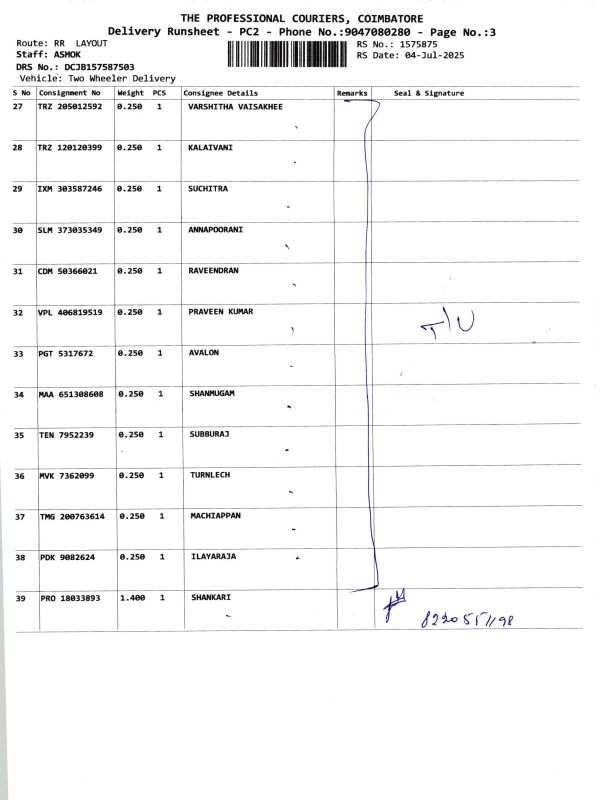 THE PROFESSIONAL COURIERS, COIMBATORE
Delivery Runsheet - PC2 - Phone No.:9047080280 - Page No.:3
Route: RR LAYOUT
Staff: ASHOK
DRS No.: DCJB157587503
Vehicle: Two Wheeler Delivery
RS No.: 1575875
RS Date: 04-Jul-2025
S No Consignment No Weight PCS Consignee Details Remarks Seal & Signature
27 TRZ 205012592 0.250 1 VARSHITHA VAISAKHEE
28 TRZ 120120399 0.250 1 KALAIVANI
29 IXM 303587246 0.250 1 SUCHITRA
30 SLM 373035349 0.250 1 ANNAPOORANI
31 CDM 50366021 0.250 1 RAVEENDRAN
32 VPL 406819519 0.250 1 PRAVEEN KUMAR T/U
33 PGT 5317672 0.250 1 AVALON
34 MAA 651308608 0.250 1 SHANMUGAM
35 TEN 7952239 0.250 1 SUBBURAJ
36 MVK 7362099 0.250 1 TURNLECH
37 TMG 200763614 0.250 1 MACHIAPPAN
38 PDK 9082624 0.250 1 ILAYARAJA
39 PRO 18033893 1.400 1 SHANKARI
8220551198